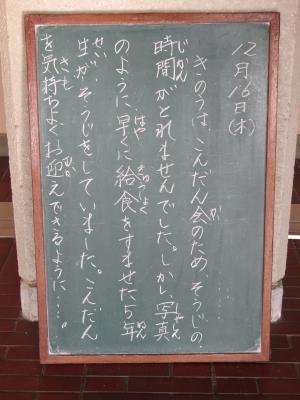 12月16日(木)
きのうは、こんだん会のため、そうじの
時間がとれませんでした。しかし、写真
のように、早くに給食をすませた5年
生がそうじをしていました。こんだん
を気持ちよくお迎えできるように……。